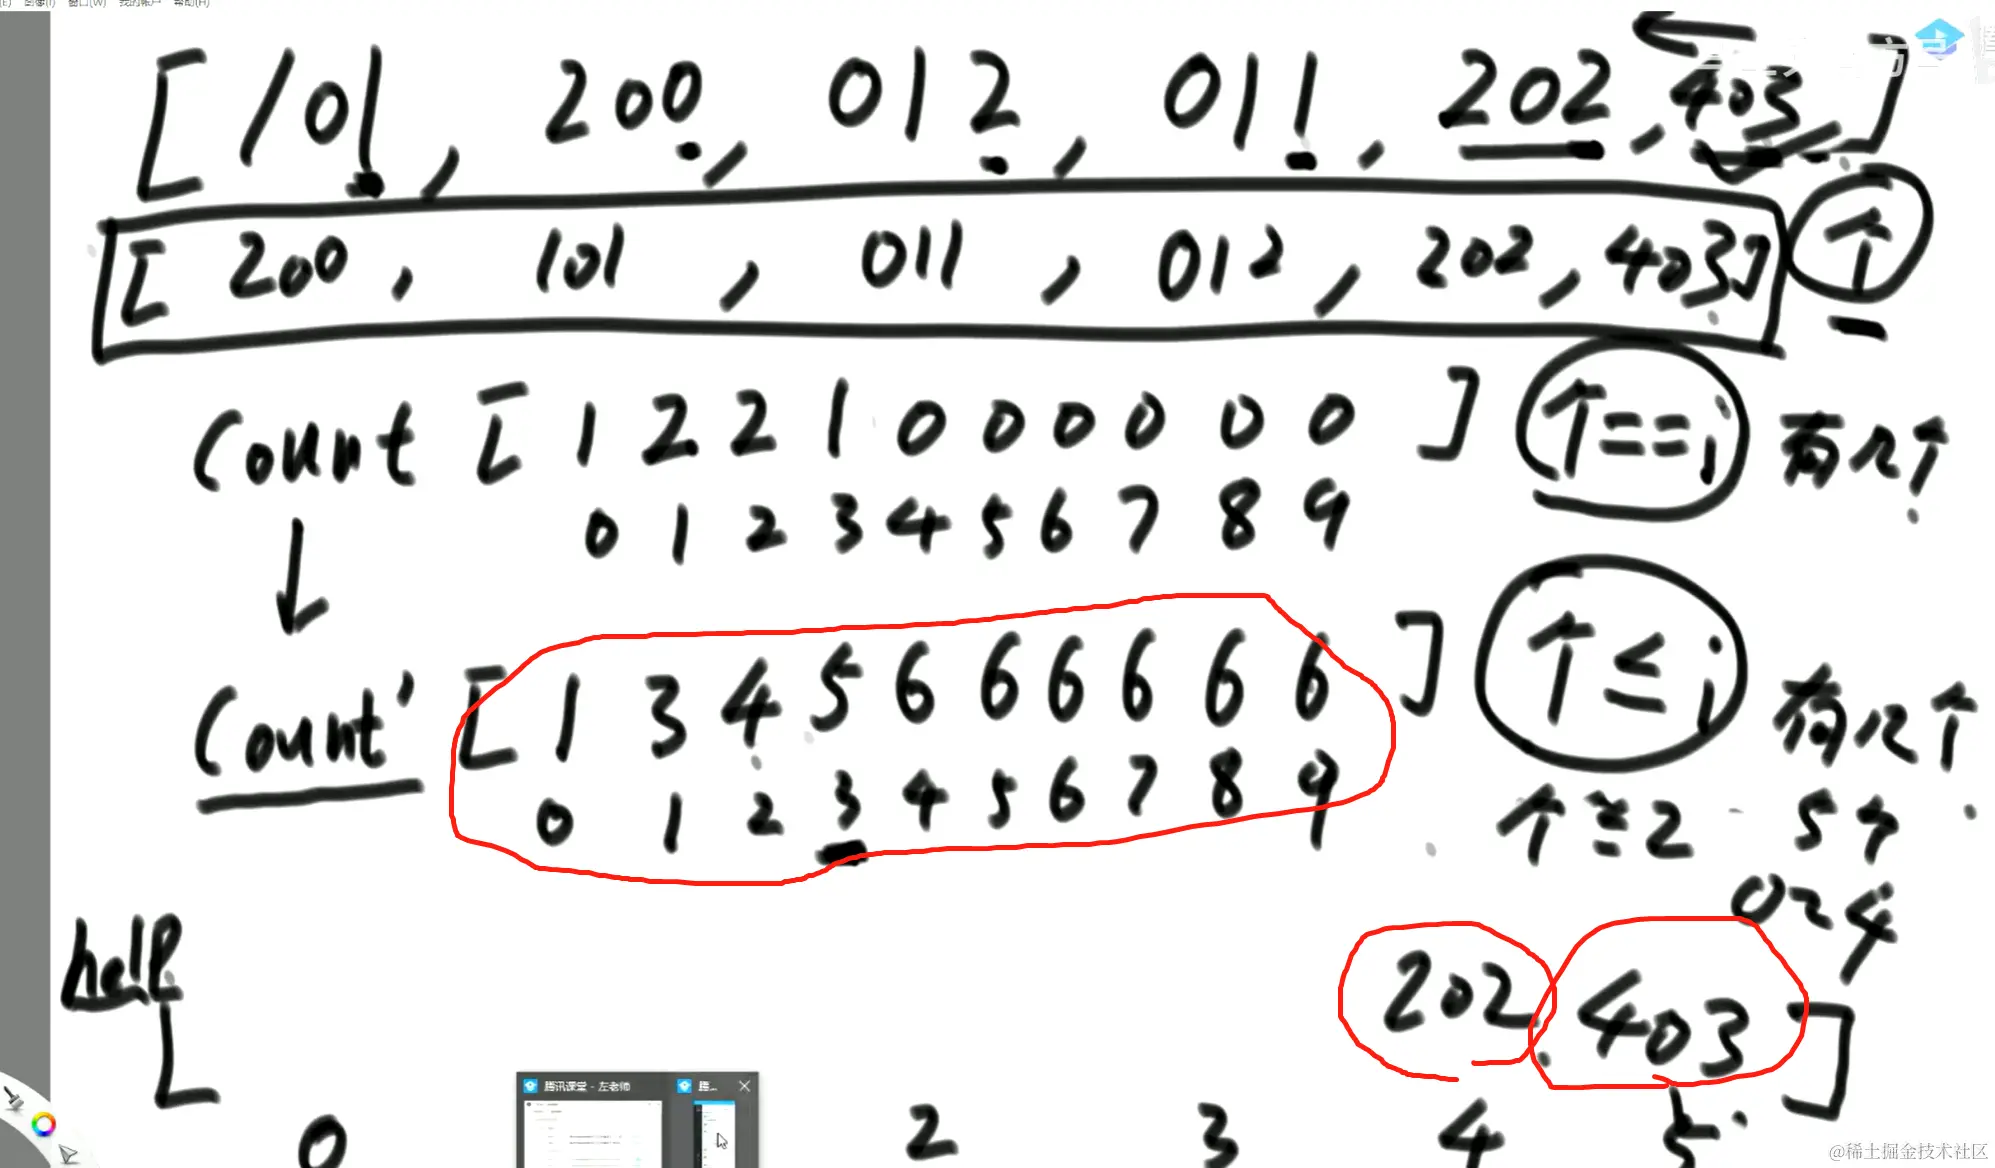 [101, 200, 012, 011, 202, 403]
[200, 101, 011, 012, 202, 403] 个
Count [1 2 2 1 0 0 0 0 0 0] 个==i 有几个
0 1 2 3 4 5 6 7 8 9
Count' [1 3 4 5 6 6 6 6 6 6] 个≤i 有几个
0 1 2 3 4 5 6 7 8 9
个≤2 5个
0~4
help [ 202, 403]
0 2 3 4 5
腾讯课堂 - 左老师 腾...
@稀土掘金技术社区